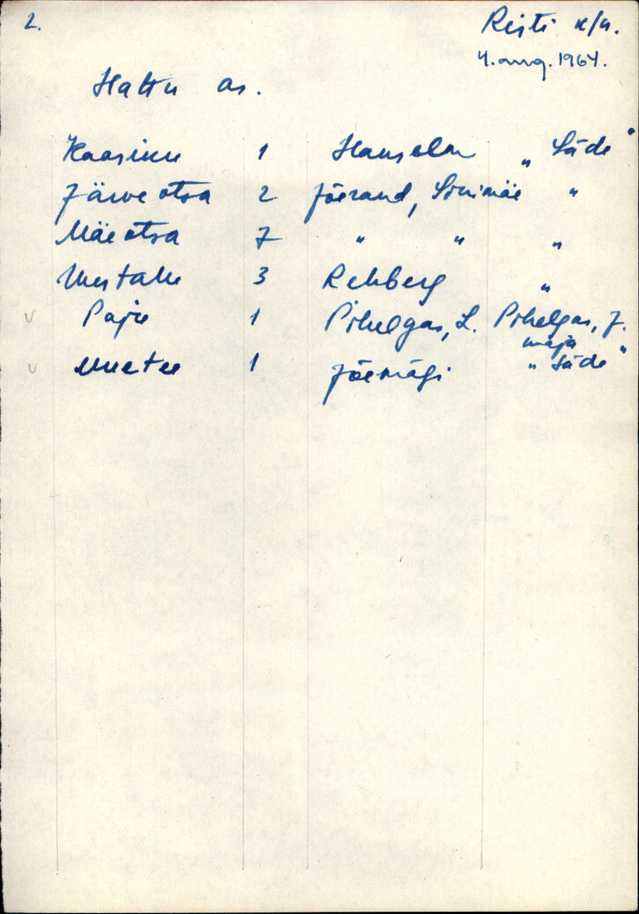 2.
Risti k/n.
4. aug. 1964.
Hattu as.
Kaasiku 1 Hanselm „Säde"
Järveotsa 2 Jõerand, Sinimäe "
Mäeotsa 7 " " "
Uustalu 3 Rehberg "
v Paju 1 Pihelgas, L. Pihelgas, J.
maja
v Uuetee 1 Jõemägi „Säde"